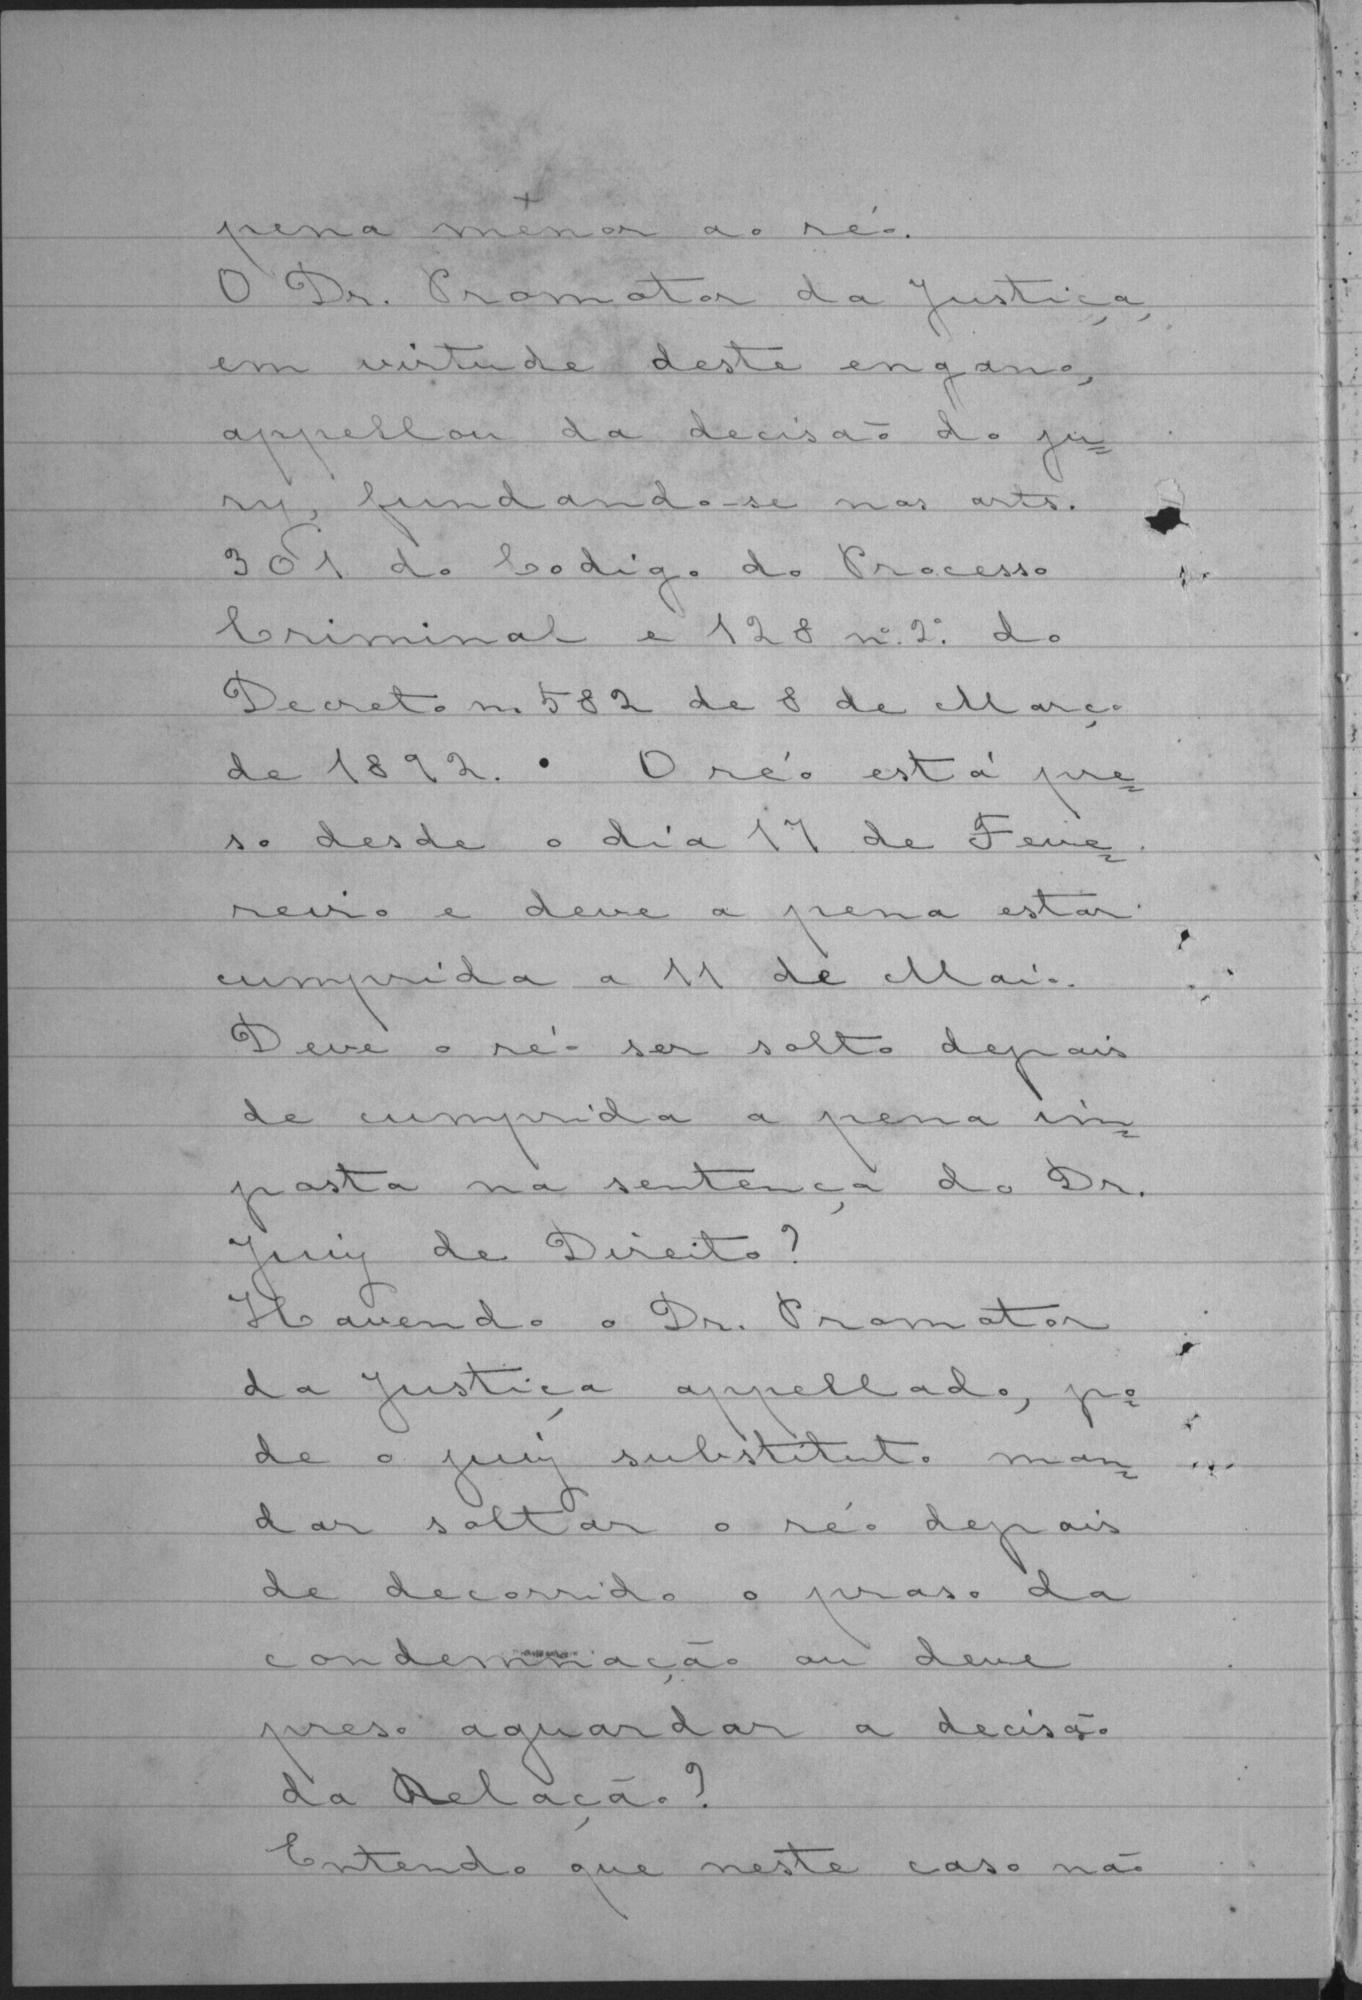 pena menor ao réo.
O Dr. Promotor da Justiça,
em virtude deste engano,
appellou da decisão do ju=
ry, fundando-se nos arts.
301 do Codigo do Processo
Criminal e 128 n.º 2.º do
Decreto n. 582 de 8 de Março
de 1892. • O réo está pre=
so desde o dia 17 de Feve=
reiro e deve a pena estar
cumprida a 11 de Maio.
Deve o réo ser solto depois
de cumprida a pena im=
posta na sentença do Dr.
Juiz de Direito?
Havendo o Dr. Promotor
da Justiça appellado, po=
de o juiz substituto man=
dar soltar o réo depois
de decorrido o praso da
condemnação ou deve
preso aguardar a decisão
da Relação?
Entendo que neste caso não